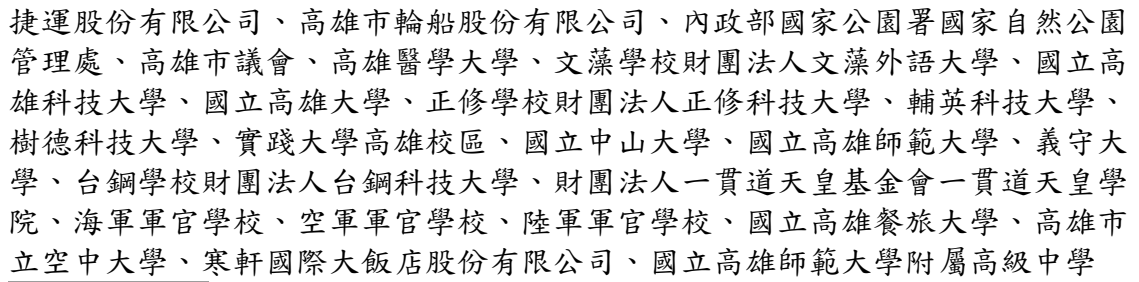 捷運股份有限公司、高雄市輪船股份有限公司、內政部國家公園署國家自然公園
管理處、高雄市議會、高雄醫學大學、文藻學校財團法人文藻外語大學、國立高
雄科技大學、國立高雄大學、正修學校財團法人正修科技大學、輔英科技大學、
樹德科技大學、實踐大學高雄校區、國立中山大學、國立高雄師範大學、義守大
學、台鋼學校財團法人台鋼科技大學、財團法人一貫道天皇基金會一貫道天皇學
院、海軍軍官學校、空軍軍官學校、陸軍軍官學校、國立高雄餐旅大學、高雄市
立空中大學、寒軒國際大飯店股份有限公司、國立高雄師範大學附屬高級中學